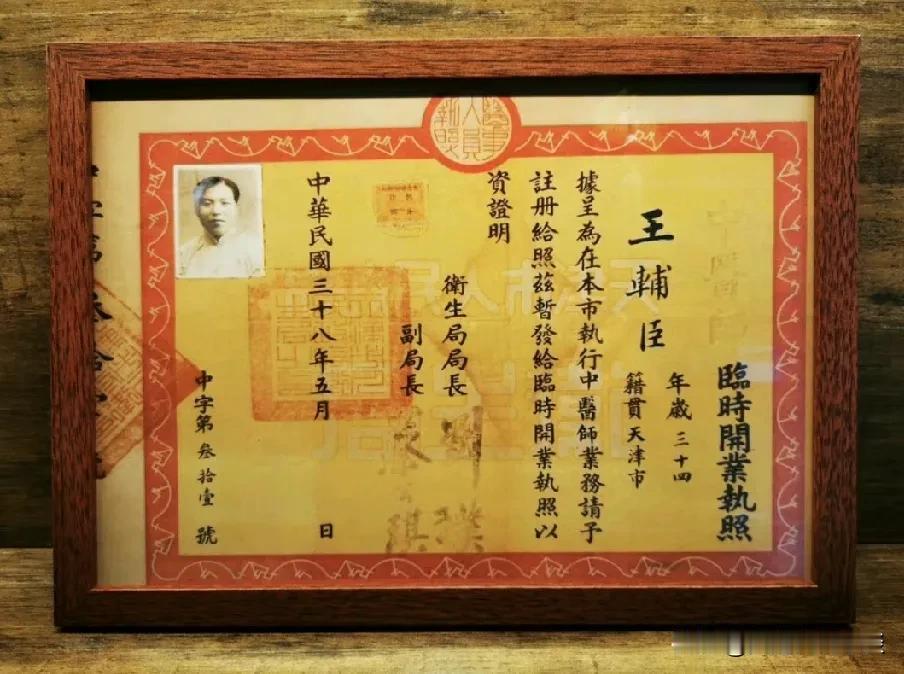 醫事
人員
執照
臨時開業執照
王輔臣
年歲三十四
籍貫天津市
據呈為在本市執行中醫師業務請予
註册給照茲暫發給臨時開業執照以
資證明
衛生局局長
副局長
中華民國三十八年五月 日
中字第叁拾壹號